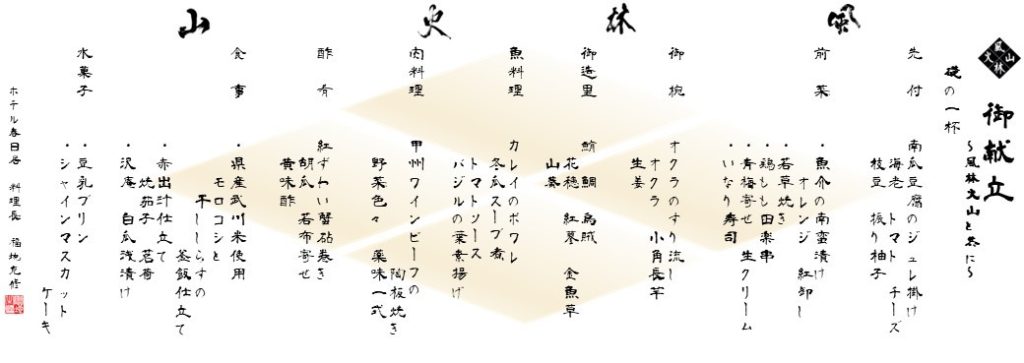 風林火山
御献立
～風林火山と共に～
礎の一杯
先付
南瓜豆腐のジュレ掛け
海老 トマト チーズ
枝豆 振り柚子
風
前菜
・魚介の南蛮漬け
オレンジ 紅卸し
・若草焼き
・鶏もも田楽串
・青梅寄せ 生クリーム
・いなり寿司
御椀
オクラのすり流し
オクラ 小角長芋
生姜
林
御造里
鮪 鯛 烏賊
花穂 紅蓼 金魚草
山葵
魚料理
カレイのポワレ
冬瓜スープ煮
トマトソース
バジルの葉素揚げ
火
肉料理
甲州ワインビーフの
陶板焼き
野菜色々 薬味一式
酢肴
紅ずわい蟹砧巻き
胡瓜 若布寄せ
黄味酢
食事
・県産武川米使用
モロコシと
干ししらすの
釜飯仕立て
・赤出汁仕立て
焼茄子 茗荷
・沢庵 白瓜浅漬け
山
水菓子
・豆乳プリン
・シャインマスカット
ケーキ
ホテル春日居 料理長 福地充修